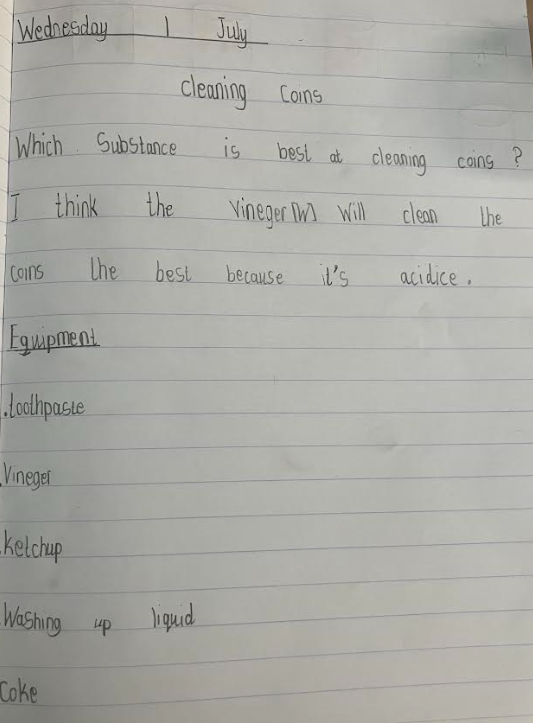 Wednesday 1 July
cleaning coins
Which Substance is best at cleaning coins ?
I think the Vineger(W) will clean the
coins the best because it's acidice.
Equipment
.toothpaste
.Vineger
.ketchup
.Washing up liquid
Coke